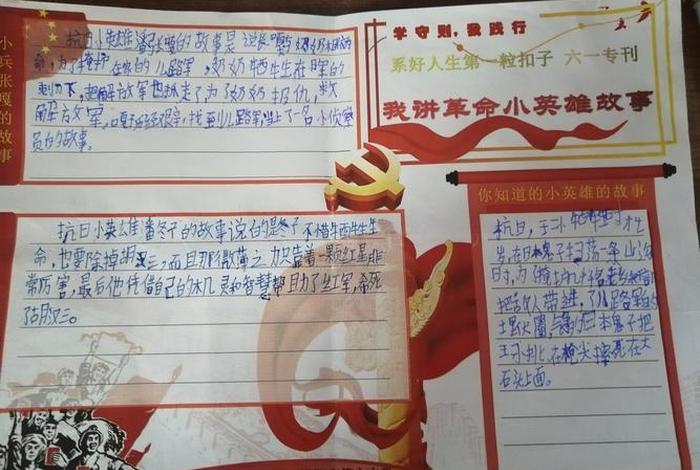 小兵张嘎的故事
抗日小英雄潘嘎的故事是说
命,为了掩护在家的八路军,奶奶牺牲在日军的
刺刀下,也抓走了为了奶奶报仇,救
解放军,嘎历经艰辛,找到八路军当上了一名小侦察
员的故事。
学守则,我践行
系好人生第一粒扣子 六一专刊
我讲革命小英雄故事
抗日小英雄潘冬子的故事说的是冬子不惜牺牲生
命,也要除掉胡汉三,而且那微薄之力只靠着一颗红星非
常厉害,最后他凭借自己的机灵和智慧帮助了红军,杀死
了胡汉三。
你知道的小英雄的故事
抗日,王二小牺牲时才
岁,在日本鬼子扫荡一条山沟
时,为了掩护
把敌人带进了八路军的
土里火圈,的日本鬼子把
王二小扎在枪尖摔死在大
石头上面。